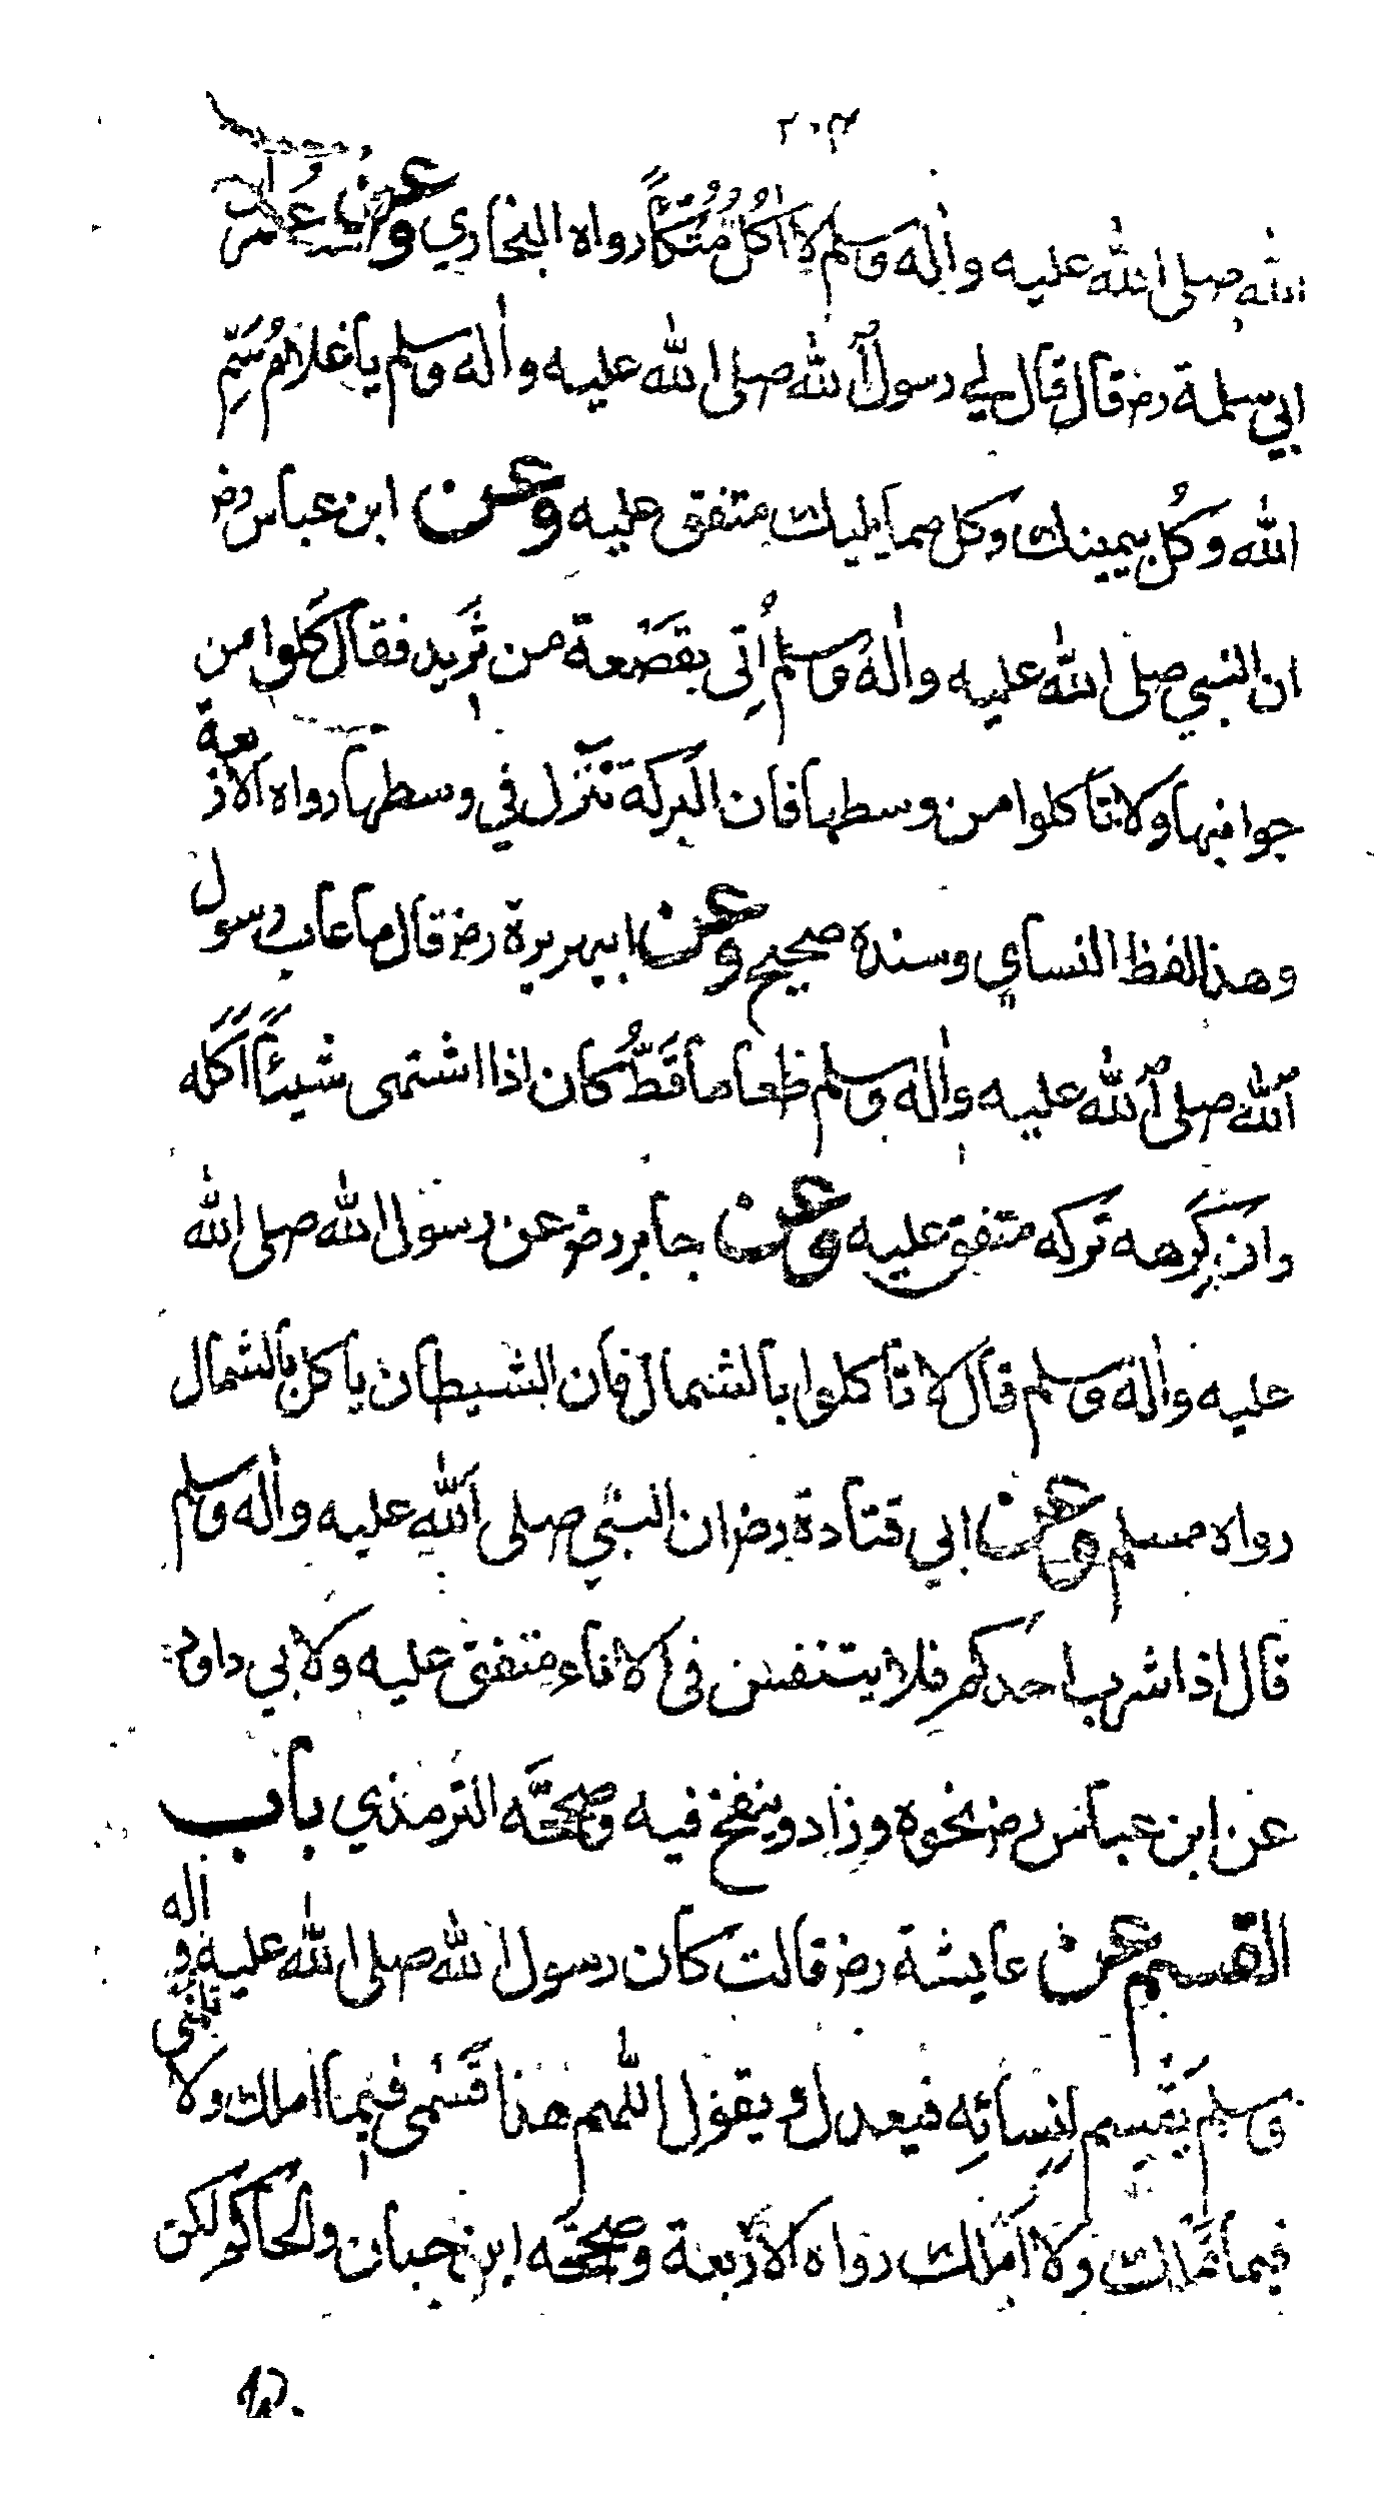 ٢٠٣
الله صلى الله عليه واٰله وسلم لا اٰكُلُ مُتَّكِأً رواه البخاري وعن عُمَر ابن
ابي سلمة رض قال قال لي رسول الله صلى الله عليه واٰله وسلم يا غلامُ سَمِّ
الله وكُل بيمينك وكل مما يليك متفق عليه وعن ابن عباس رض
ان النبي صلى الله عليه واٰله وسلم اُتِى بقَصْعة من ثَرِيد فقال كُلوا من
جوانبها ولا تأكلوا من وسطها فان البركة تنزل في وسطها رواه الاربعة
وهذا لفظ النساي وسنده صحيح وعن ابيهريرة رض قال ما عاب رسول
الله صلى الله عليه واٰله وسلم طعاما قَطُّ كان اذا اشتهى شيئاً اَكَله
وان كَرِهه تركه متفق عليه وعن جابر رض عن رسول الله صلى الله
عليه واٰله وسلم قال لا تأكلوا بالشمال فان الشيطان يأكل بالشمال
رواه مسلم وعن ابي قتادة رض ان النبي صلى الله عليه واٰله وسلم
قال اذا شرب احدكم فلا يتنفس فى الاناء متفق عليه ولابي داود
عن ابن عباس رض نحوه وزاد وينفخ فيه وصححَّه الترمذي باب
القسم عن عايشة رض قالت كان رسول الله صلى الله عليه واٰله
وسلم يَقْسِم لِنِسائِه فيعدل ويقول اللهم هذا قَسْمى فيما املك ولا تلمنى
فيما تملك ولا املك رواه الاربعة وصححَّه ابن حبان والحاكم لكن